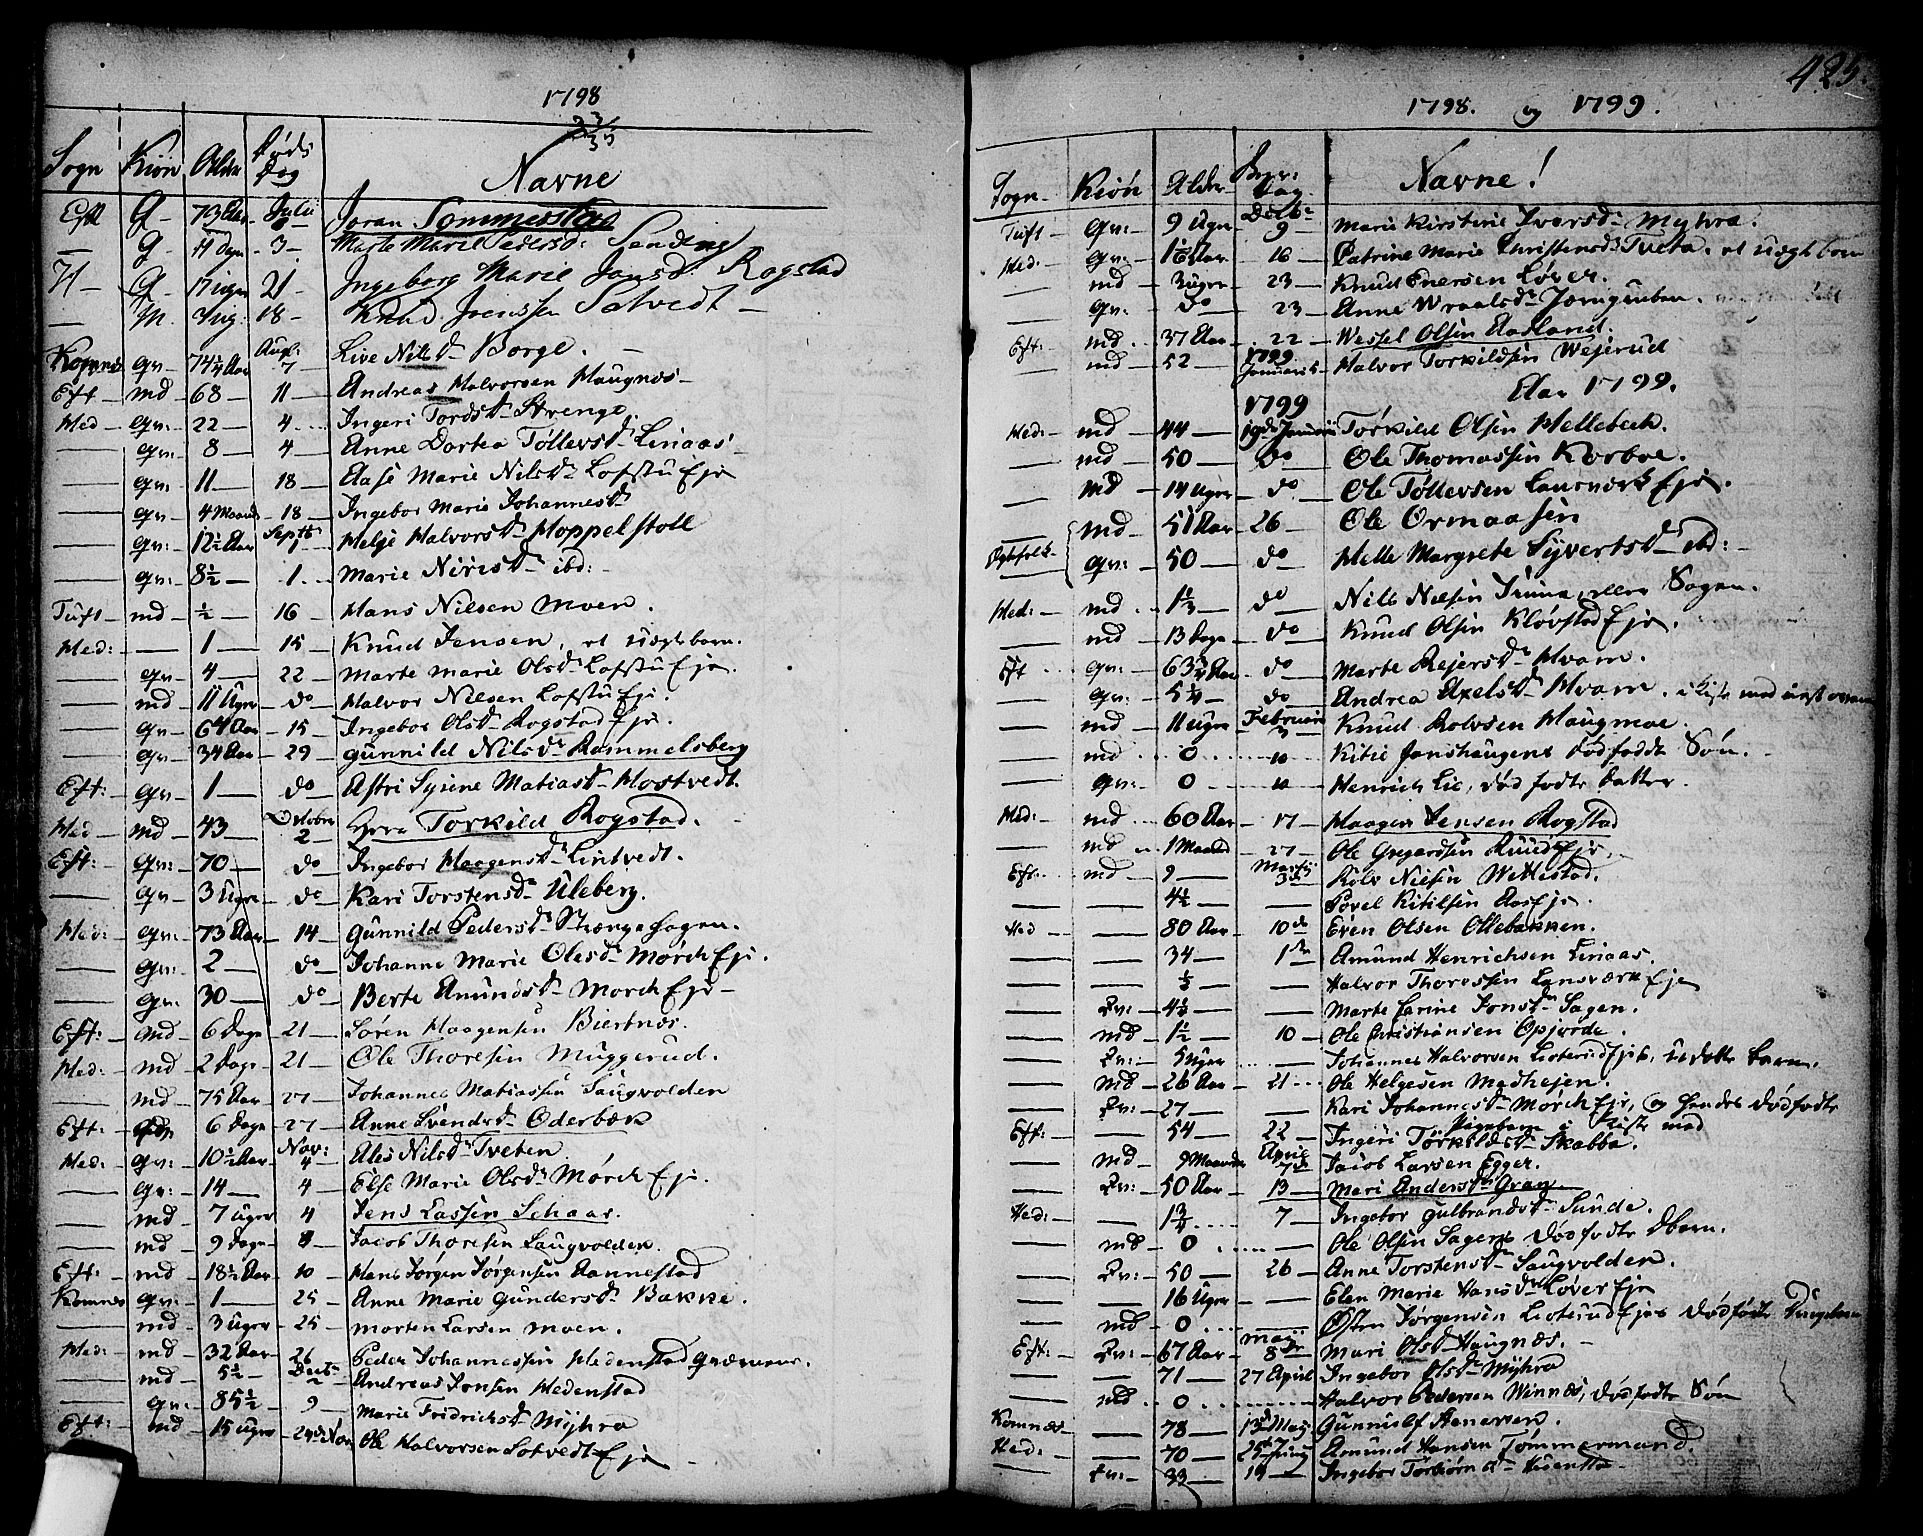 1798
Sogn Kiön Alder Døds Dag Navne
Eft Q - 73 Aar - Julii 8 Joran Sommerstad
— Q - 11 Dage - 3 - Marte Marie Peders d: Sending
H - Q - 17 uger 21 - Ingeborg Marie Jans d: Rogstad
— M. 18 - Knud Joenssen Satvedt -
Komnes qv - 74 1/4 Aar Augt: 7 Live Nils d. Borge. -
Eft - md - 68 - 11 - Andreas Halvorsen Haugnes -
Med - qv: - 22 - 4 Ingeri Tords d. Strenge.
— qv: - 8 - 4 - Anne Dortea Töllers d. Linaas
— qv: - 11 - 18 - Aase Marie Nils d. Lofstu Eje
— qv - 4 Maan - 18 - Ingebor Marie Johannes d.
— qv: - 12 1/2 Aar Septb 1 - Helje Halvors d. Hoppelstoll
— qv: 8 1/2 - 1. Marie Niris d. ibd: -
Tuft - md - 1/2 - 16 - Hans Nilsen Moen.
Med: - — 1 - 15 - Knud Jensen, et uægte barn.
— qv - 4 - 22 - Marte Marie Ols d. Lofstu Eje.
— md - 11 Uger do - Halvor Nilsen Lofstu Eje.
— qv - 64 Aar - 15 - Ingebor Ols d. Rogstad Eje.
— qv - 34 Aar - 29 - Gunnild Nils d. Rammelsberg
Eft: - qv - 1 - do - Astri Syrene Matias d. Hostvedt.
Med - md - 43 Octobre 2 Herre Torkild Rogstad.
Eft: - qv: - 70 - do - Ingebor Haagens d. Lintvedt.
— qv - 3 Uger - do - Kari Torstens d. Uleberg.
Med: - qv: - 73 Aar - 14 - Gunnild Peders d. Strængehagen.
— qv: 2 - do - Johanne Marie Oles d. Mörch Eje.
— qv: 30 - do - Berte Amunds d. Mörch Eje -
Eft: - md - 6 Dage - 21 - Sören Haagensen Biertnes.
Med: - md - 2 Dage - 21 - Ole Thoresen Muggerud.
— md - 75 Aar - 27 - Johannes Matiassen Saugvolden
Eft: - 6 Dage - 27 - Anne Svends d. Oderbæk
Med: - qv: - 10 1/2 Aar - Nov: 4 Ales Nils d. Tveten.
— qv: - 14 - 4 - Else Marie Ols d. Mörch Eje.
— md - 7 Uger 4 - Jens Lassen Schaar.
— md - 9 Dage - 8 - Jacob Thoresen Saugvolden.
Eft: - md - 18 1/2 Aar - 10 - Hans Jörgen Jörgensen Aannestad
Komnes qv: - 1 - 25 - Anne Marie Gunders d. Bakke.
— md - 3 Uger - 25 - Morten Larsen Moen.
Med: - md - 32 Aar 26 Peder Johannessen Hedenstad
— md - 5 1/2 - Decb: Andreas Jonsen Hedenstad
— qv: - 85 1/2 - 9 - Marie Fridrichs d. Myhra
Eft: - md - 15 Uger - 24de Nov Ole Halvorsen Sotvedt Eje -
425.
1798. og 1799.
Sogn - Kiön Alder Begr: Dag. Navne!
Tuft - qv: - 9 Uger - Decb: 9 - Marie Kirstine Ivers d. Myhra.
Med: - qv: - 1 1/2 Aar - 16 - Patrine Marie Christens d. Tveta. et uægte barn
— md - 3 uger - 23 - Knud Enersen Löver.
— qv: - do - 23 - Anne Wraals d. Jerngruben.
Eft: - md. 37 Aar - 22 - Wessel Olsen Aasland.
— md - 52 1799 Januarii Halvor Torkildsen Wejerud
Aar 1799.
1799
Med: - md - 44 - 19de Januarii Törkild Olsen Hellebech.
— md - 50 - do - Ole Thomassen Korboe.
— md - 14 Uger - do Ole Töllevsen Lauværk Eje.
— md - 51 Aar - 26 - Ole Ormaasen
qv: - 50 - do Helle Margrete Syverts d. ibd: -
Med: - md - 1 1/3 - do - Nils Nilsen Trüna, eller Sagen.
— md - 13 Dage - do - Knud Olsen Klövstad Eje.
Eft - qv: - 63 3/4 Aar - do Marte Rejers d. Hvam.
— qv: - 5 1/4 - do - Andrea Axels d. Hvam. i Kiste med næst ovenn
— md - 11 Uger - Februarii 3 Knud Rolvsen Haugmoe.
— md - 0 10 Kitil Janshaugens dödfödde Sön.
— qv: - 0 10 Henrich Lie, död födte Datter.
Med: - md 60 Aar - 17 - Haagen Jensen Rogstad
— md 1 Maaned - 27 - Ole Gregardsen Ruud Eje.
Eft. md - 9 - Martij 3de Rolv Nielsen Wettestad.
— — 4 1/2 - — Povel Kitilsen Aas Eje.
Med - — 80 Aar - 10de Even Olsen Ollebakken.
— — 34 - 1de Amund Henrichsen Linaas.
— — 1/2 - — Halvor Thoresen Lansværk Eje
— Qv: - 4 1/2 - — Marte Carine Jons d. Sagen.
— md - 1 1/2 - 10 - Ole Christiansen Opjorde.
— Qv: - 5 Uger — Johannes Halvorsen Lioterud Ejes, udøbte Barn.
— md - 26 Aar - 21 Ole Helgesen Medhejen.
— Qv: - 27 - — Kari Johannes d. Mörch Eje, og hendes dödfödte Pigebarn i Kiste med
Eft: - — 54 - 22 - Ingeri Törkilds d. Skabba.
— md - 9 Maaneder April 7de Jacob Larsen Egger.
— Qv: - 50 Aar - 13 - Mari Anders d. Gran
Med: - — 1 3/4 7 - Ingebor Gulbrands d. Sunde.
— md - 0 — Ole Olsen Sagens dödfödte Dbarn.
— Qv: - 50 - 26 - Anne Torstens d. Saugvolden.
— — 16 Uger - — Elen Marie Hans d. Löver Eje
— md - 0 — Østen Jörgensen Lioterud Ejes dödfödte Drengebarn
Eft: - Qv: - 67 Aar - Maij 8de Mari Ols d. Haugnæs. -
— — 71 - 27 April Ingebor Ols d. Myhra
— md - 0 Halvor Pedersen Winnes, dödfödte Sön
Komnes - — 78 - 13de Maj Gunnulf Henersen.
Med: - — 70 - 25de Junij Amund Hansen Tömmermand.
— Qv: - 33 - 19 - Ingebor Torbiörn d.